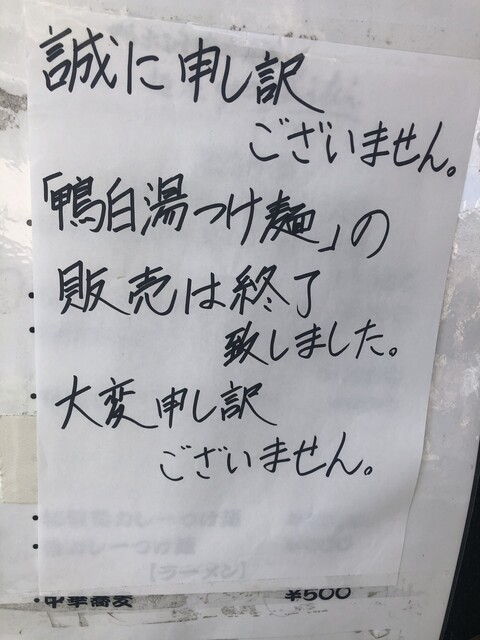 誠に申し訳
ございません。
「鴨白湯つけ麺」の
販売は終了
致しました。
大変申し訳
ございません。
[ラーメン]
・中華蕎麦 ¥500